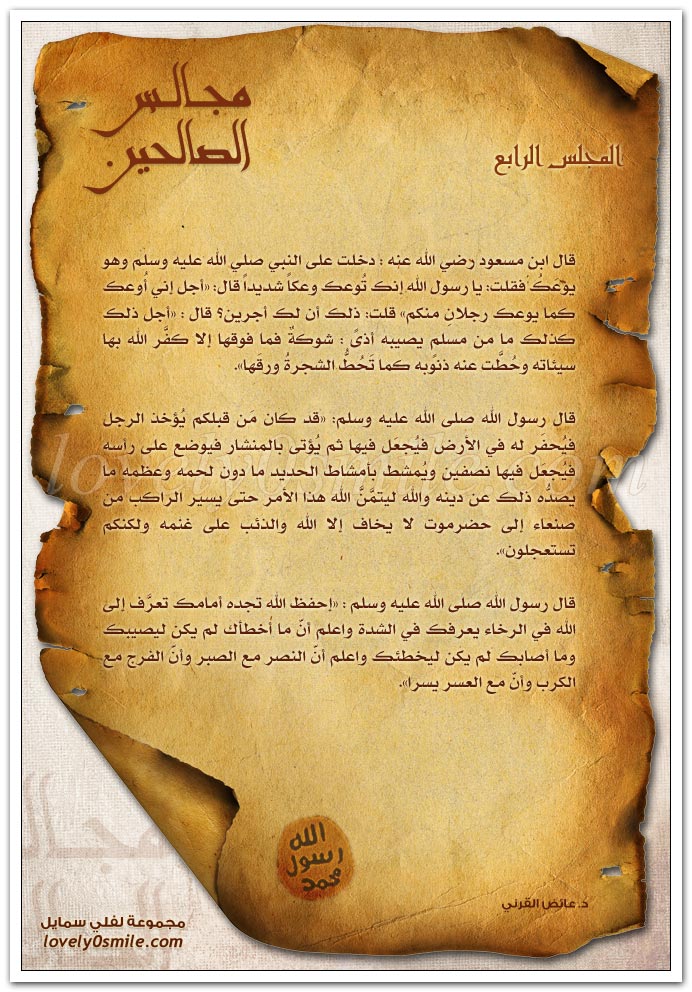 مجالس
الصالحين
المجلس الرابع
قال ابن مسعود رضي الله عنه : دخلت على النبي صلي الله عليه وسلم وهو
يوعكُ فقلت: يا رسول الله إنك تُوعك وعكاً شديداً قال: «أجل إني أُوعك
كما يوعك رجلانِ منكم» قلت: ذلك أن لك أجرين؟ قال : «أجل ذلك
كذلك ما من مسلم يصيبه أذىً : شوكةٌ فما فوقها إلا كفَّر الله بها
سيئاته وحُطَّت عنه ذنوبه كما تَحُطُّ الشجرةُ ورقَها».
قال رسول الله صلى الله عليه وسلم: «قد كان مَن قبلكم يُؤخذ الرجل
فيُحفَر له في الأرض فيُجعَل فيها ثم يُؤتى بالمنشار فيوضع على رأسه
فيُجعَل فيها نصفين ويُمشط بأمشاط الحديد ما دون لحمه وعظمه ما
يصدُّه ذلك عن دينه والله ليتمَّنَّ الله هذا الأمر حتى يسير الراكب من
صنعاء إلى حضرموت لا يخاف إلا الله والذئب على غنمه ولكنكم
تستعجلون».
قال رسول الله صلى الله عليه وسلم : «إحفظ الله تجده أمامك تعرَّف إلى
الله في الرخاء يعرفك في الشدة واعلم أنّ ما أُخطأك لم يكن ليصيبك
وما أصابك لم يكن ليخطئك واعلم أنّ النصر مع الصبر وأنّ الفرج مع
الكرب وأنّ مع العسر يسرا».
الله
رسول
محمد
د. عائض القرني
مجموعة لفلي سمايل
lovely0smile.com
lovely0smile.com